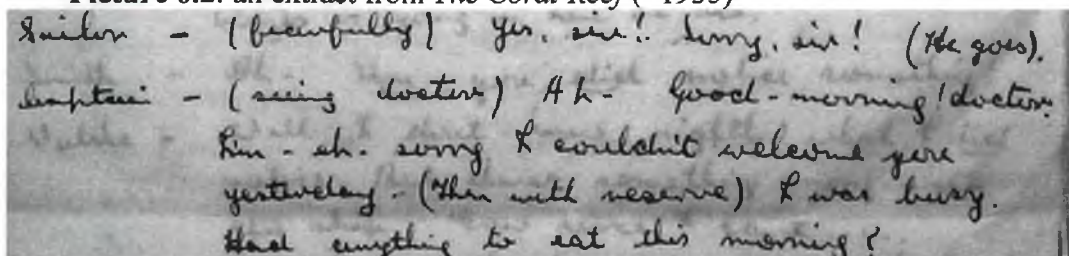 Picture 6.2: an extract from The Coral Reef (~1955)
Sailor - (fearfully) Yes, sir! Sorry, sir! (He goes).
Captain - (seeing doctor) Ah- Good-morning! doctor.
I'm - eh- sorry I couldn't welcome you
yesterday - (Then with reserve) I was busy.
Had anything to eat this morning?